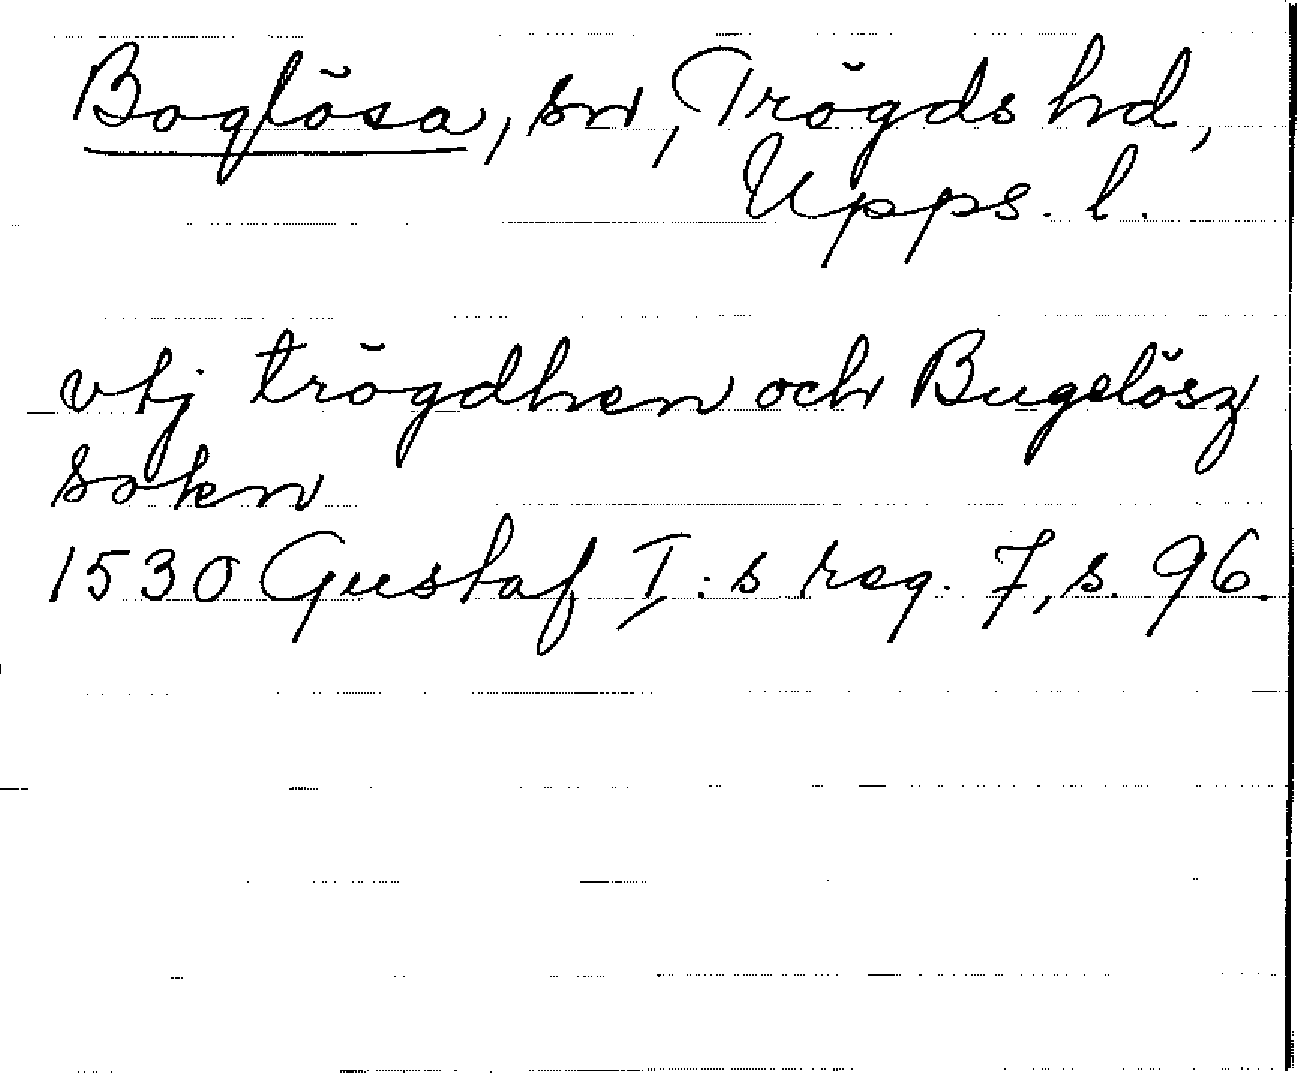 Boglösa, sn, Trögds hd,
Upps. l.
vtj trögdhen och Bugelösz
sokn
1530 Gustaf I:s reg. 7, s. 96.